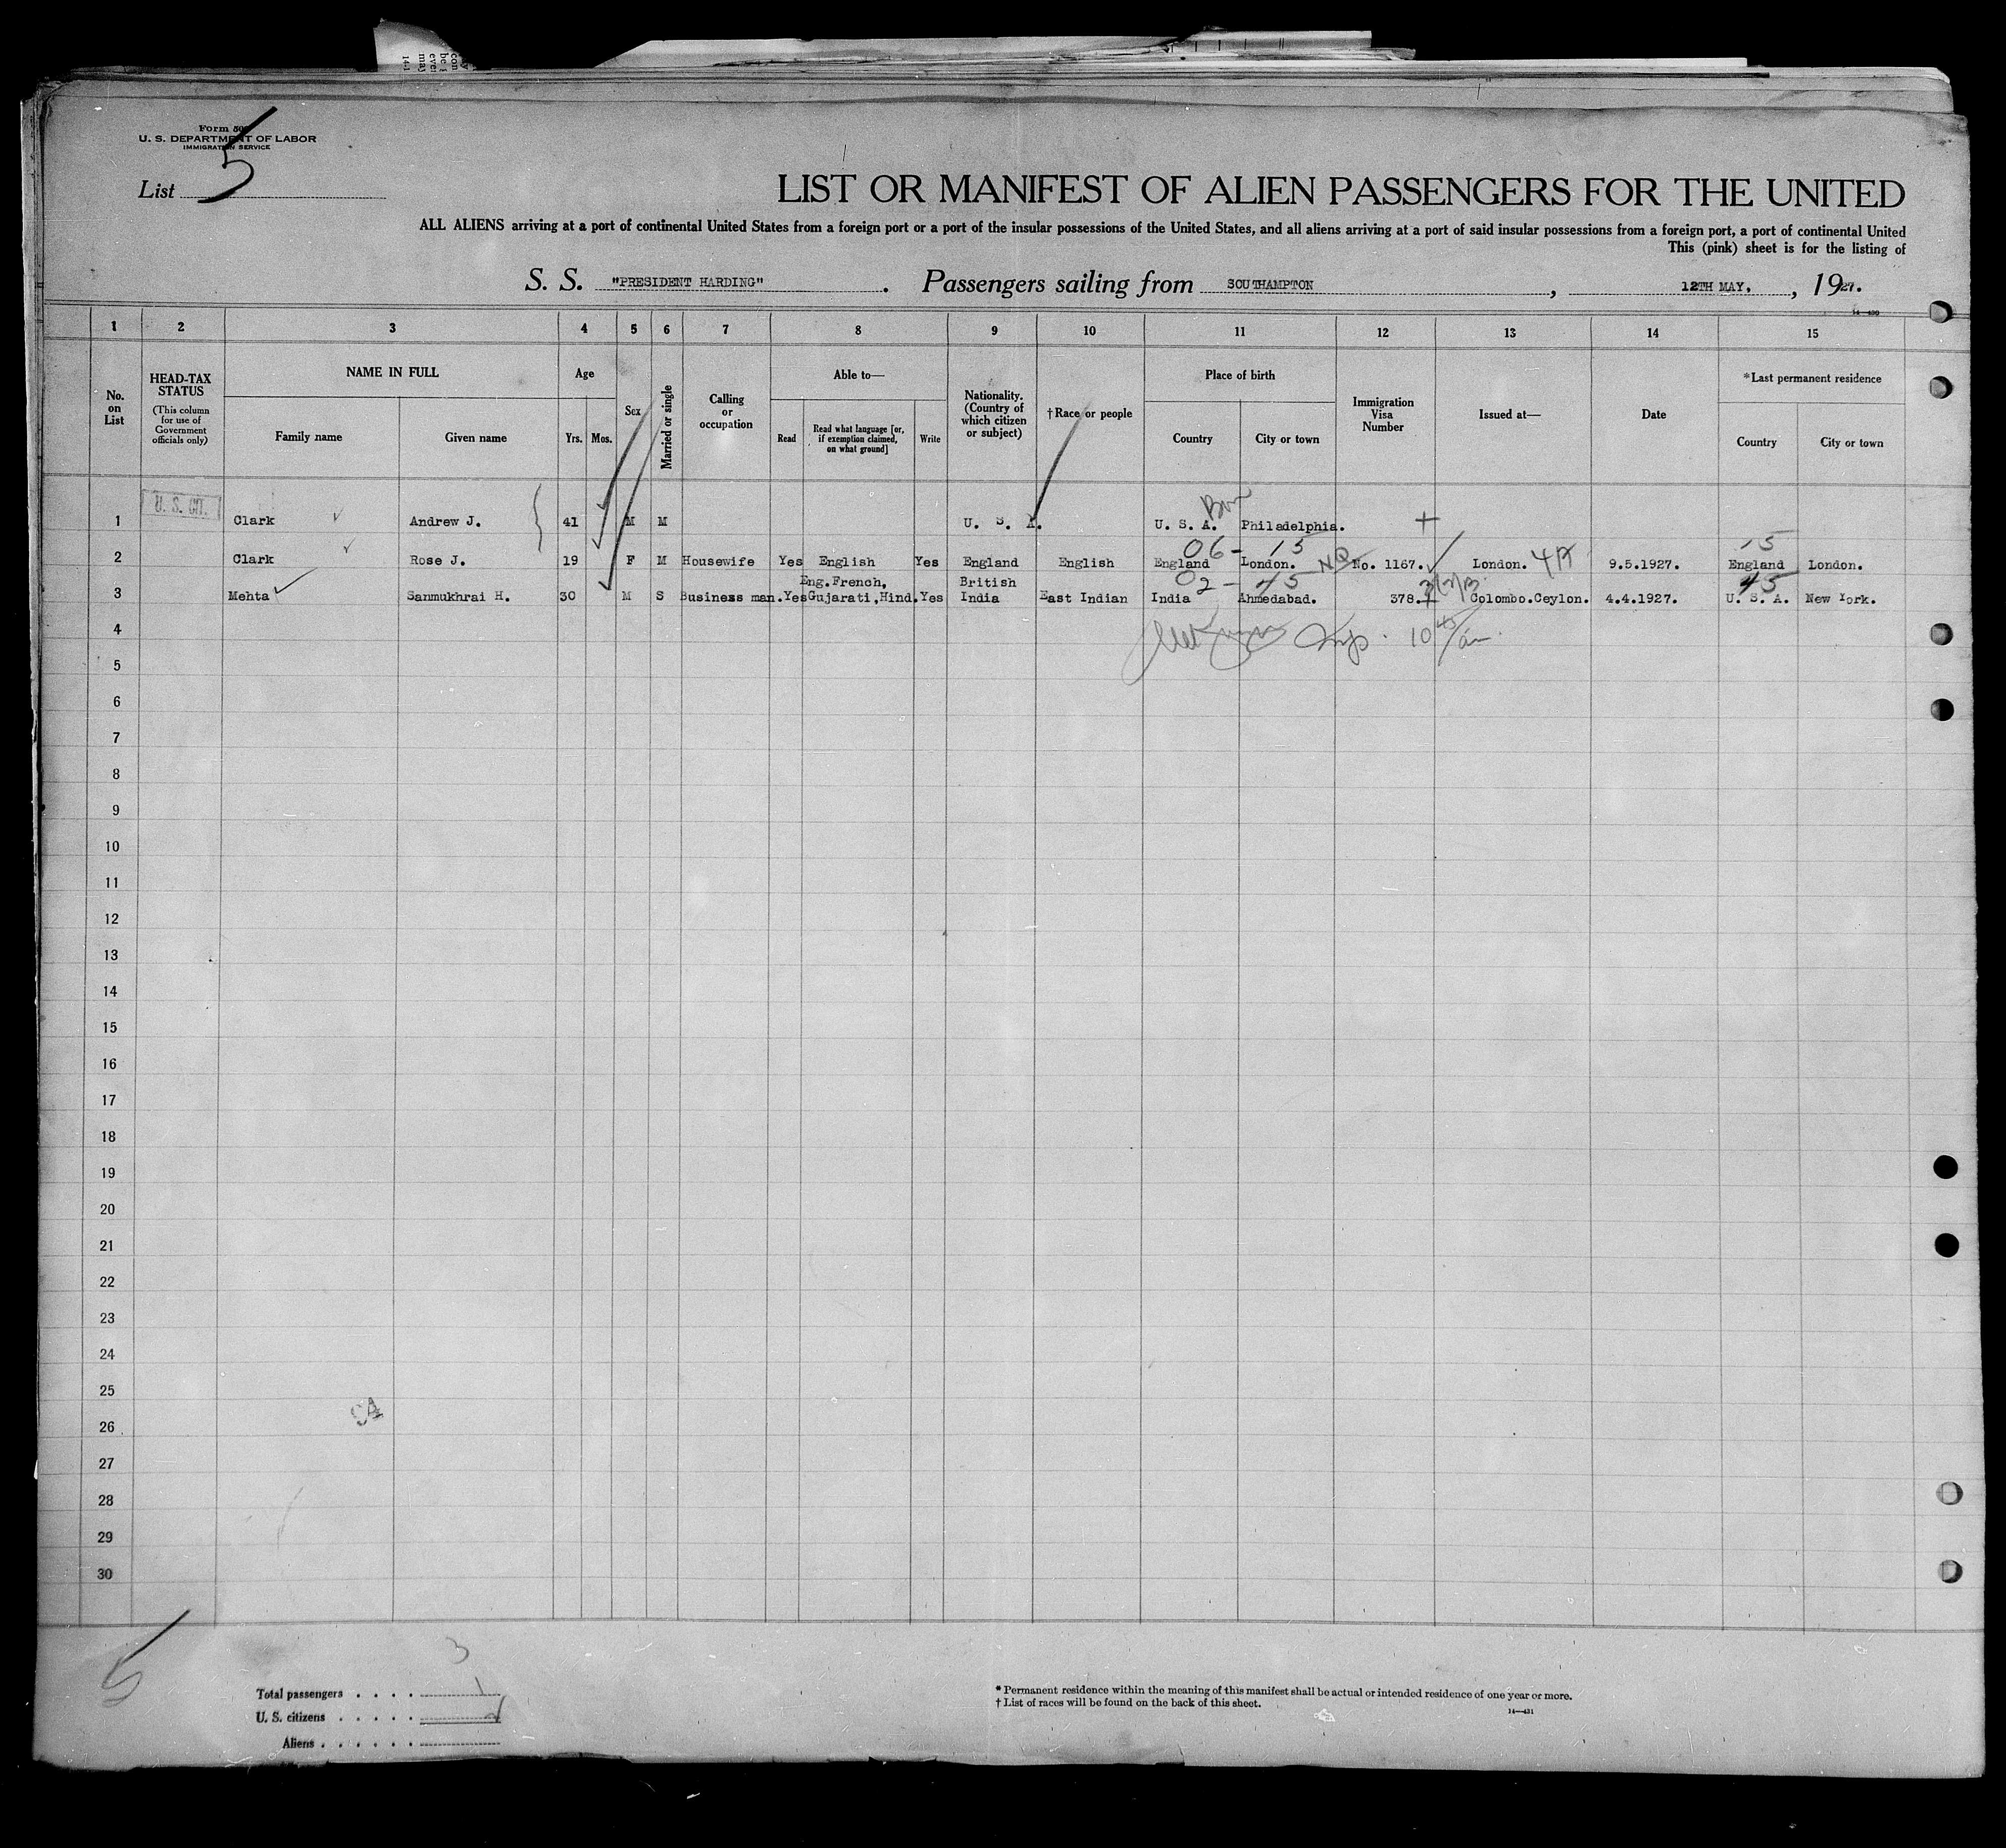 Form 500
U. S. DEPARTMENT OF LABOR
IMMIGRATION SERVICE
List 5
LIST OR MANIFEST OF ALIEN PASSENGERS FOR THE UNITED
ALL ALIENS arriving at a port of continental United States from a foreign port or a port of the insular possessions of the United States, and all aliens arriving at a port of said insular possessions from a foreign port, a port of continental United
This (pink) sheet is for the listing of
S. S. "PRESIDENT HARDING" . Passengers sailing from SOUTHAMPTON , 12TH MAY, , 1927.
14—430
1 2 3 4 5 6 7 8 9 10 11 12 13 14 15
No. on List
HEAD-TAX STATUS
(This column for use of Government officials only)
NAME IN FULL
Family name Given name
Age
Yrs. Mos.
Sex
Married or single
Calling or occupation
Able to—
Read
Read what language [or, if exemption claimed, on what ground]
Write
Nationality. (Country of which citizen or subject)
†Race or people
Place of birth
Country City or town
Immigration Visa Number
Issued at—
Date
*Last permanent residence
Country City or town
U. S. CIT.
1 Clark Andrew J. 41 M M U. S. A. U. S. A. Philadelphia.
06 - 15 15
2 Clark Rose J. 19 F M Housewife Yes English Yes England English England London. NQ No. 1167. London. 9.5.1927. England London.
02 - 45 45
Eng.French, British
3 Mehta Sanmukhrai H. 30 M S Business man. Yes Gujarati,Hind. Yes India East Indian India Ahmedabad. 378. Colombo.Ceylon. 4.4.1927. U. S. A. New York.
4
5
6
7
8
9
10
11
12
13
14
15
16
17
18
19
20
21
22
23
24
25
26
27
28
29
30
5
3
Total passengers . . . . 1
U. S. citizens . . . . . 2
Aliens . . . . . .
* Permanent residence within the meaning of this manifest shall be actual or intended residence of one year or more.
† List of races will be found on the back of this sheet.
14—431